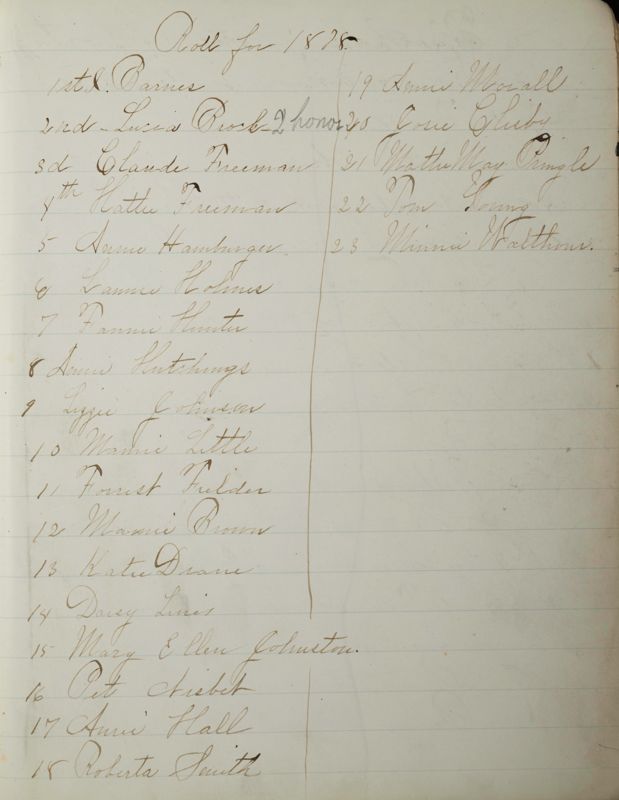 Roll for 1878
1st J. Barnes
2nd - Lucia Brock - 2 honor
3d Claude Freeman
4th Hattie Freeman
5 Annie Hamburger
6 Lannie Holmes
7 Fannie Hunter
8 Annie Hutchings
9 Lizzie Johnson
10 Mamie Little
11 Forrest Fielder
12 Mamie Brown
13 Katie Deane
14 Daisy
15 Mary Ellen Johnston.
16 Pet Nisbet
17 Annie Hall
18 Roberta Smith
19 Annie Morall
20 Josie
21 Mattie May Pringle
22 Tom Young
23 Minnie Walthour.